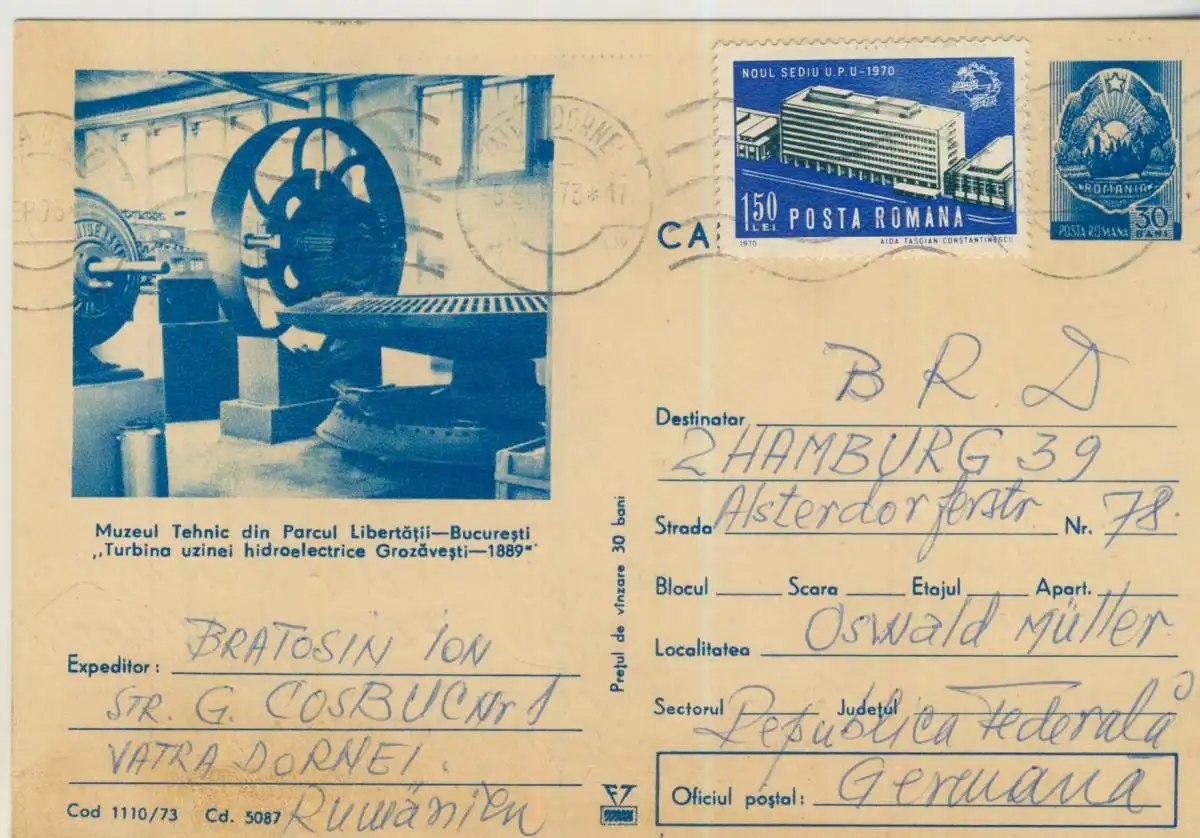 NOUL SEDIU U.P.U-1970
150 LEI POSTA ROMÂNA
1970 AIDA TASGIAN CONSTANTINESCU
ROMÂNIA
POSTA ROMANA 30 BANI
SEP 73 17
CA
Muzeul Tehnic din Parcul Libertății—București
„Turbina uzinei hidroelectrice Grozăvești—1889"
Expeditor: BRATOSIN ION
STR. G. COSBUC Nr 1
VATRA DORNEI.
Rumänien
Cod 1110/73 Cd. 5087
Prețul de vînzare 30 bani
B R. D
Destinatar
2 HAMBURG 39
Strada Alsterdorferstr Nr. 78.
Blocul Scara Etajul Apart.
Localitatea Oswald Müller
Sectorul Județul
Republica Federală
Oficiul poștal: Germană